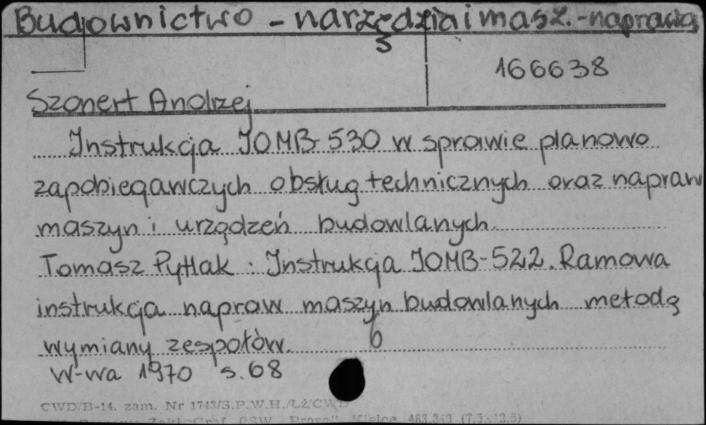 Budownictwo - narzędzia i masz. - naprawa
166638
Szonert Andrzej
Instrukcja JOMB 530 w sprawie planowo
zapobiegawczych obsług technicznych oraz napraw
maszyn i urządzeń budowlanych.
Tomasz Pytlak : Instrukcja JOMB-522. Ramowa
instrukcja napraw maszyn budowlanych metodą
wymiany zespołów. b
W-wa 1970 s. 68
CWD/B-14. zam. Nr 1743/S.P.W.H./Łż/CWD